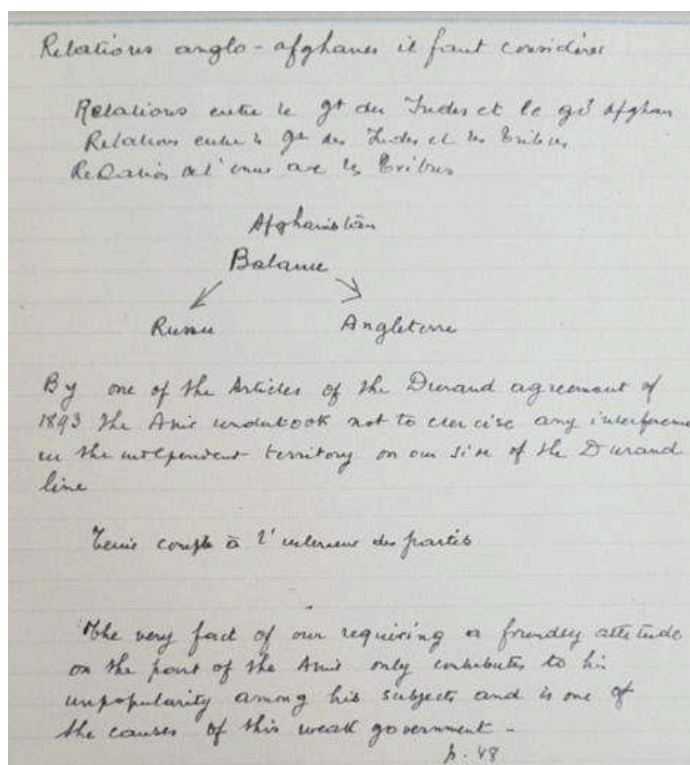 Relations anglo-afghanes il faut considérer
Relations entre le gt des Indes et le gt Afghan
Relations entre le gt des Indes et les Tribus
Relations de l'émir avec les Tribus
Afghanistan
Balance
Russie Angleterre
By one of the Articles of the Durand agreement of
1893 the Amir undertook not to exercise any interference
in the independent territory on our side of the Durand
line
Tenir compte à l'intérieur des partis
The very fact of our requiring a friendly attitude
on the part of the Amir only contributes to his
unpopularity among his subjects and is one of
the causes of this weak government -
p. 48